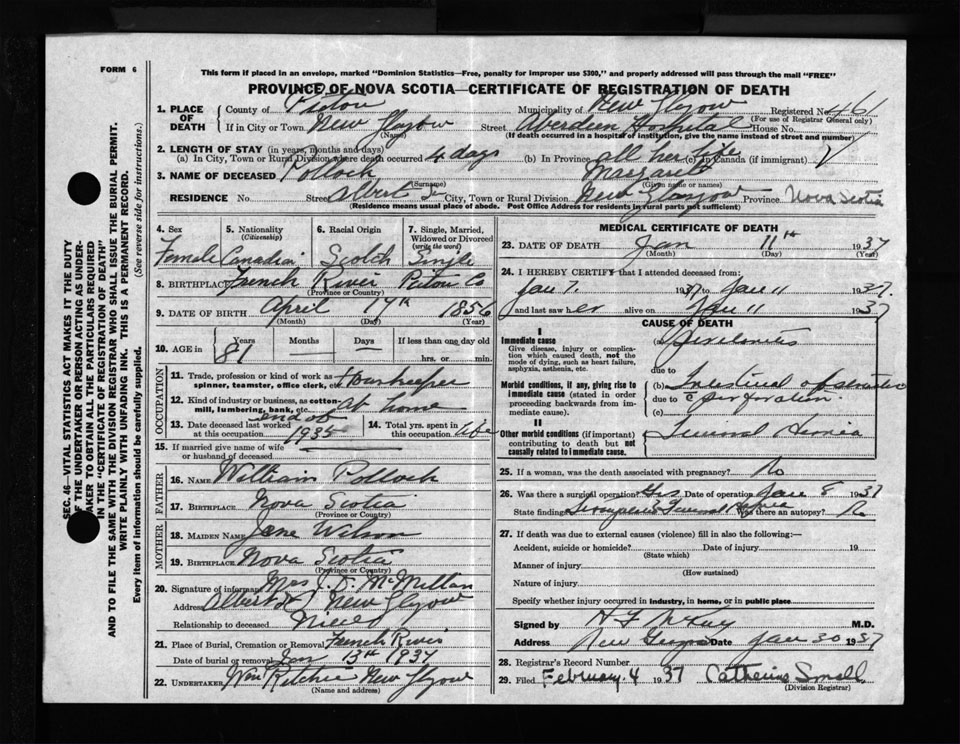 FORM 6
This form if placed in an envelope, marked "Dominion Statistics—Free, penalty for improper use $300," and properly addressed will pass through the mail "FREE"
PROVINCE OF NOVA SCOTIA—CERTIFICATE OF REGISTRATION OF DEATH
1. PLACE OF DEATH
County of Pictou Municipality of New Glasgow Registered No. 461
(For use of Registrar General only)
If in City or Town New Glasgow Street Aberdeen Hospital House No.
(Name) (If death occurred in a hospital of institution, give the name instead of street and number)
2. LENGTH OF STAY (in years, months and days)
(a) In City, Town or Rural Division where death occurred 4 days (b) In Province all her life (c) in Canada (if immigrant)
3. NAME OF DECEASED Pollock Margaret
(Surname) (Given name or names)
RESIDENCE No. Street Albert St City, Town or Rural Division New Glasgow Province Nova Scotia
(Residence means usual place of abode. Post Office Address for residents in rural parts not sufficient)
4. Sex
Female
5. Nationality
(Citizenship)
Canadian
6. Racial Origin
Scotch
7. Single, Married, Widowed or Divorced
(write the word)
Single
8. BIRTHPLACE French River Pictou Co
(Province or Country)
9. DATE OF BIRTH April 7th 1856
(Month) (Day) (Year)
10. AGE in Years Months Days If less than one day old
81 — — hrs. or min.
OCCUPATION
11. Trade, profession or kind of work as spinner, teamster, office clerk, etc. Housekeeper
12. Kind of industry or business, as cotton-mill, lumbering, bank, etc. At home
13. Date deceased last worked at this occupation end of 1935
14. Total yrs. spent in this occupation life
15. If married give name of wife or husband of deceased
FATHER
16. NAME William Pollock
17. BIRTHPLACE Nova Scotia
(Province or Country)
MOTHER
18. MAIDEN NAME Jane Wilson
19. BIRTHPLACE Nova Scotia
(Province or Country)
20. Signature of informant Mrs J. D. McMillan
Address Albert St New Glasgow
Relationship to deceased Niece
21. Place of Burial, Cremation or Removal French River
Date of burial or removal Jan 13th 1937
22. UNDERTAKER Wm Ritchie New Glasgow
(Name and address)
MEDICAL CERTIFICATE OF DEATH
23. DATE OF DEATH Jan 11th 1937
(Month) (Day) (Year)
24. I HEREBY CERTIFY that I attended deceased from:
Jan 7. 1937 to Jan 11 1937.
and last saw her alive on Jan 11 1937
CAUSE OF DEATH
I
Immediate cause
Give disease, injury or complication which caused death, not the mode of dying, such as heart failure, asphyxia, asthenia, etc.
(a) Peritonitis
due to
Morbid conditions, if any, giving rise to immediate cause (stated in order proceeding backwards from immediate cause).
(b) Intestinal obstruction
due to c perforation.
(c)
II
Other morbid conditions (if important) contributing to death but not causally related to immediate cause.
Femoral Hernia
25. If a woman, was the death associated with pregnancy? No
26. Was there a surgical operation? Yes Date of operation Jan 8 1937
State findings Strangulated Femoral Hernia Was there an autopsy? No
27. If death was due to external causes (violence) fill in also the following:—
Accident, suicide or homicide? Date of injury 19
(State which)
Manner of injury
(How sustained)
Nature of injury
Specify whether injury occurred in industry, in home, or in public place
Signed by M.D.
Address New Glasgow Date Jan 30 1937
28. Registrar's Record Number
29. Filed February 4 1937 Catherine Small
(Division Registrar)
SEC. 46—VITAL STATISTICS ACT MAKES IT THE DUTY
OF THE UNDERTAKER OR PERSON ACTING AS UNDER-
TAKER TO OBTAIN ALL THE PARTICULARS REQUIRED
IN THE "CERTIFICATE OF REGISTRATION OF DEATH"
AND TO FILE THE SAME WITH THE DIVISION REGISTRAR WHO SHALL ISSUE THE BURIAL PERMIT.
WRITE PLAINLY WITH UNFADING INK. THIS IS A PERMANENT RECORD.
Every item of information should be carefully supplied. (See reverse side for instructions.)